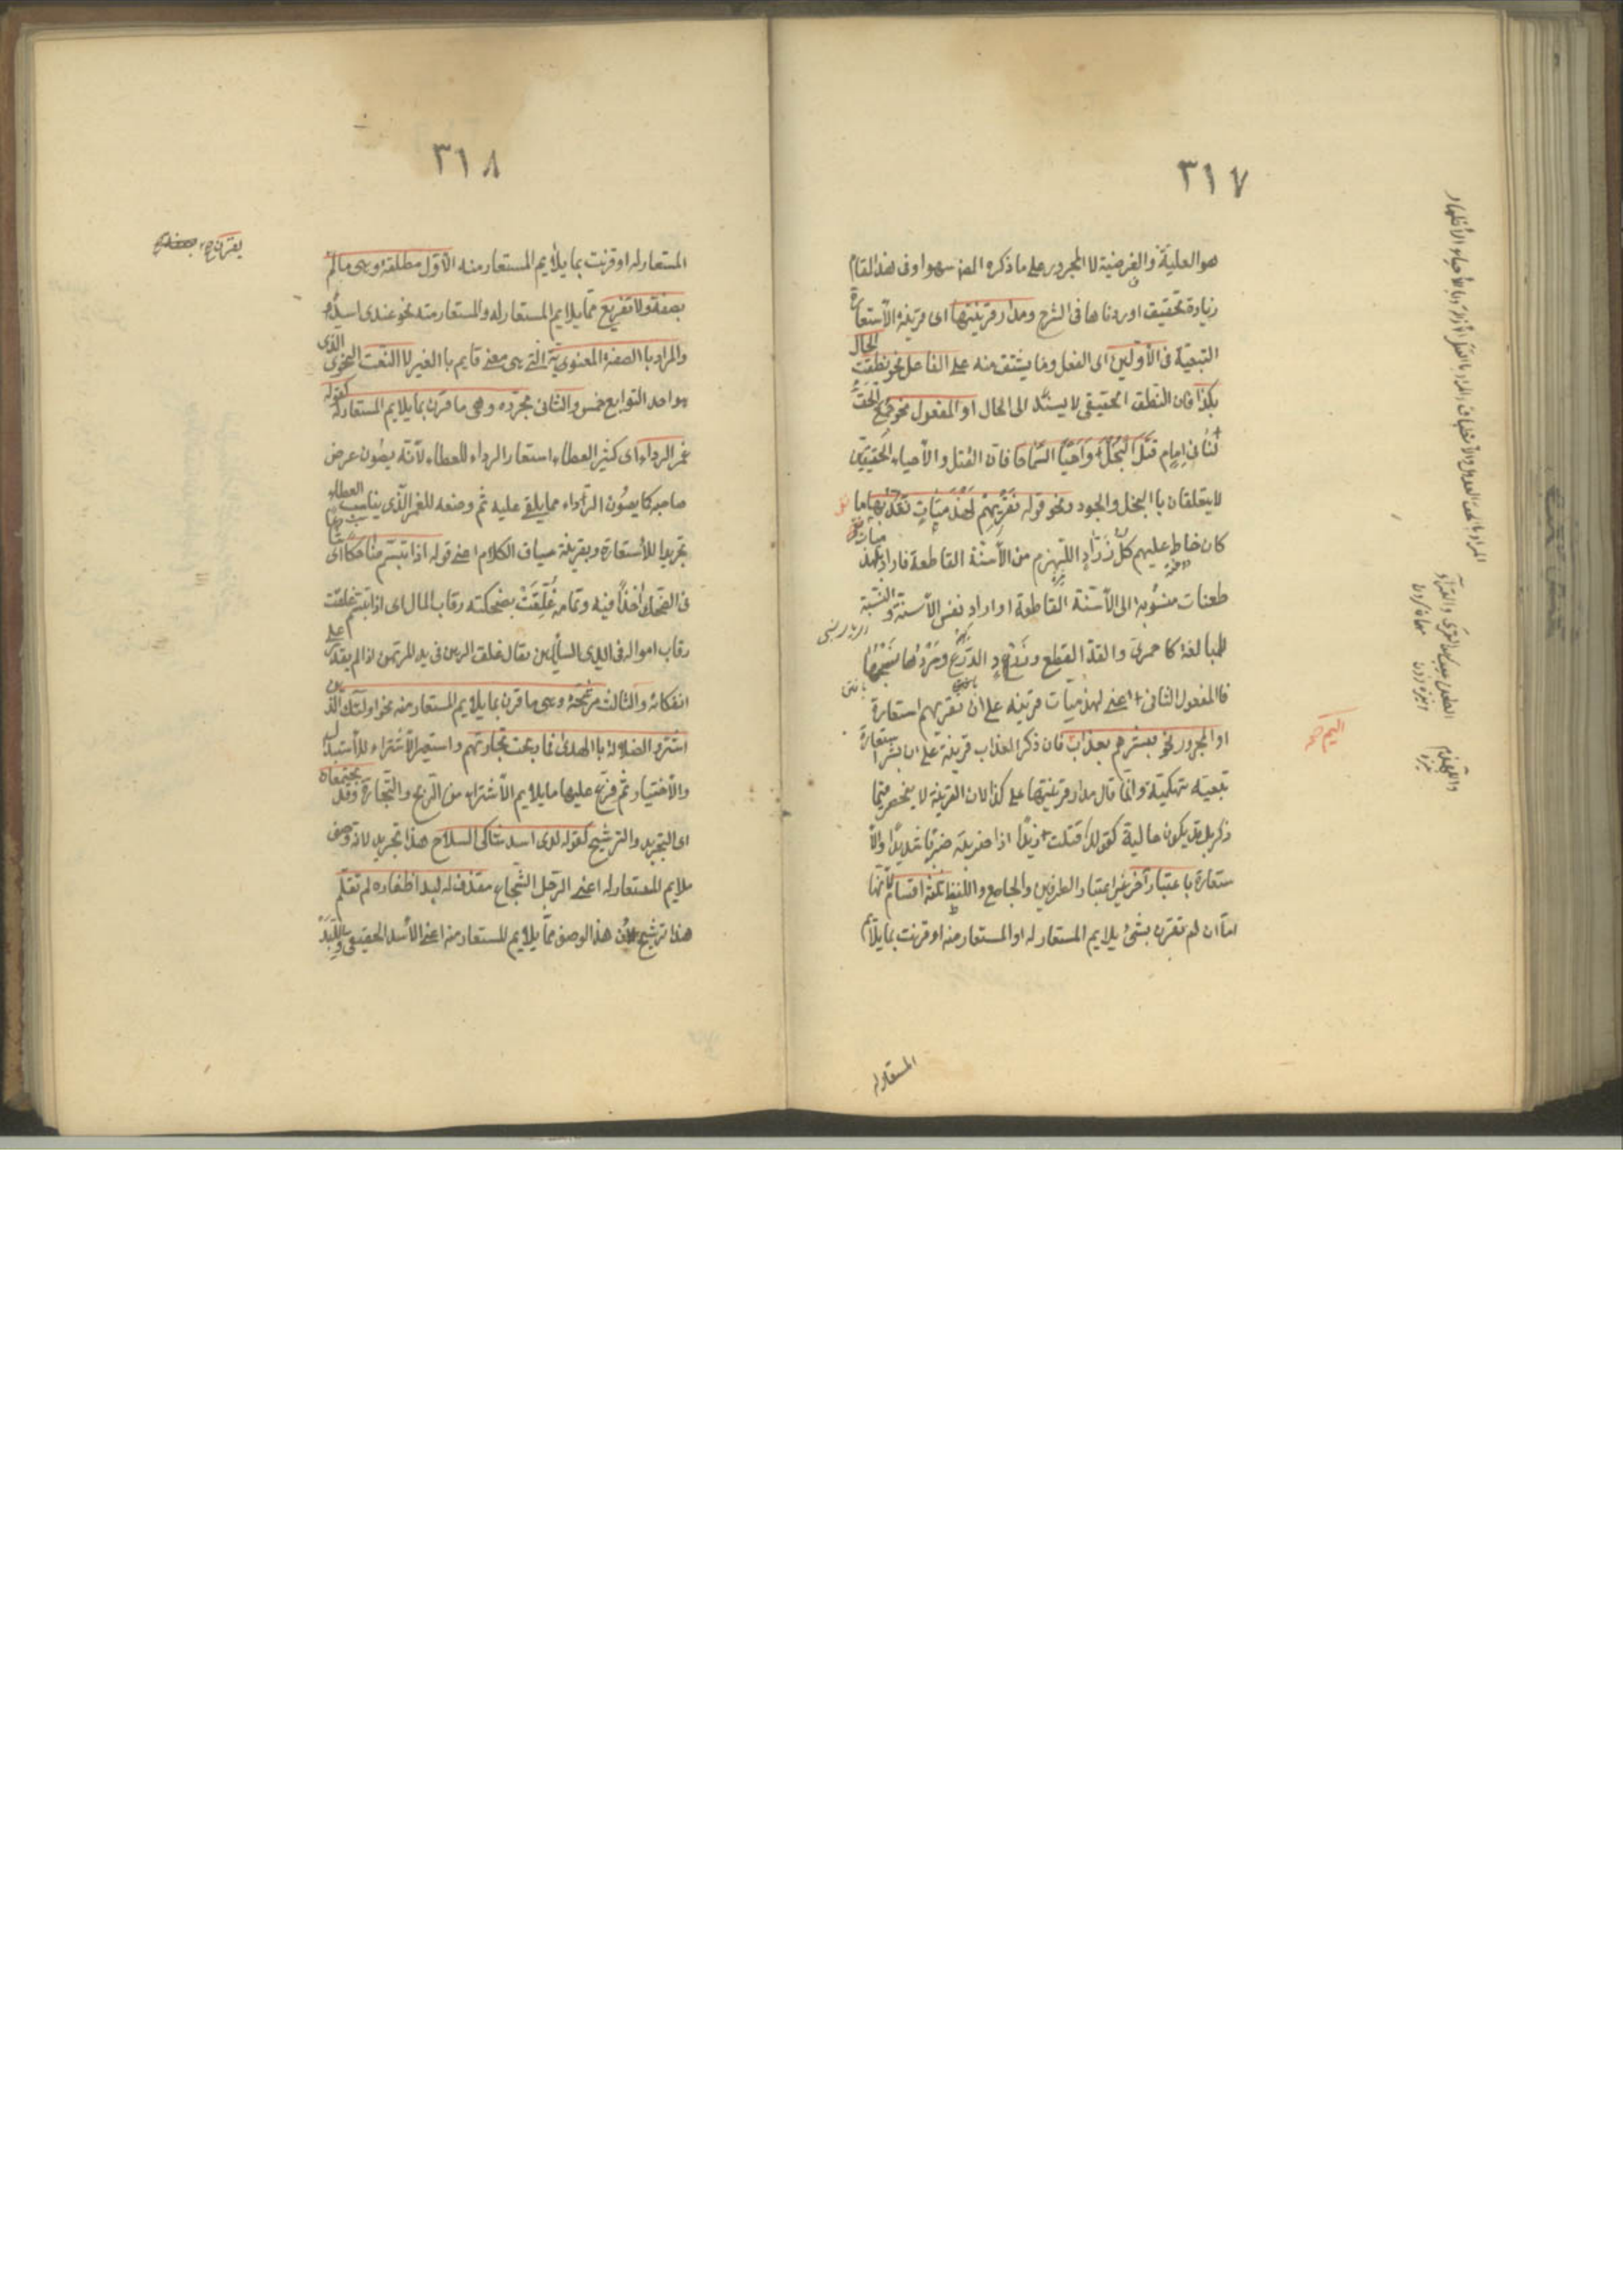 ٣١٧
هو العلية والغرضية لا المجرور على ما ذكره المص سهوا وفى هذا المقام
زيادة تحقيق اوردناها فى الشرح ومدار قرينتها اى قرينة الأستعارة
التبعية فى الأولين اى الفعل وما يشتق منه على الفاعل نحو نطقت الحال
بكذا فان النطق الحقيقى لا يسند الى الحال او المفعول نحو جمع الحق
لنا فى امام قتل البخل واحيا السماحا فان القتل والأحياء الحقيقيين
لا يتعلقان باالبخل والجود ونحو قوله نقريهم لهذميات نقد بها ما
كان خاط عليهم كل زراد اللهذم من الأسنة القاطعة فاراد بلهذميات
طعنات منسوبة الى الأسنة القاطعة او اراد نفس الأسنة والنسبة
للمبالغة كاحمرى والقد القطع وزرد الدرع وسردها نسجها
فالمفعول الثانى اعنى لهذميات قرينة على ان نقريهم استعارة
او المجرور نحو فبشرهم بعذاب فان ذكر العذاب قرينة على ان بشر استعارة
تبعية تهكمية وانما قال مدار قرينتها على كذا لان القرينة لا ينحصر فيما
ذكر بل قد يكون حالية كقولك قتلت زيدا اذا ضربته ضربا شديدا والأ
ستعارة باعتبار آخر غير اعتبار الطرفين والجامع واللفظ ثلثة اقسام لأنها
اما ان لم تقترن بشئ يلايم المستعار له او المستعار منه او قرنت بما يلايم
المستعار له
اليم صح
٣١٨
المستعار له او قرنت بما يلايم المستعار منه الأول مطلقة وهى ما لم
يقترن صح
بصفة ولا تفريع مما يلايم المستعار له والمستعار منه نحو عندى اسد
والمراد باالصفة المعنوية التى هى معنى قايم باالغير لا النعت النحوى الذى
هو احد التوابع خمس والثانى مجردة وهى ما قرن بما يلايم المستعار له كقوله
غمر الرداء اى كثير العطاء استعار الرداء للعطاء لأنه يصون عرض
صاحبه كما يصون الرداء ما يلقى عليه ثم وصفه للغمر الذى يناسب العطاء
تجريدا للأستعارة وبقرينة سياق الكلام اعنى قوله اذا تبسم ضاحكا اى شارعا
فى الضحك اخذا فيه وتمامه غلقت بضحكته رقاب المال اى اذا تبسم غلقت
رقاب امواله فى ايدى السايلين يقال غلق الرهن فى يد المرتهن اذا لم يقدر على
انفكاكه والثالث مرشحة وهى ما قرن بما يلايم المستعار منه نحو اولئك الذين
اشتروا الضلالة باالهدى فما ربحت تجارتهم واستعير الأشتراء للأستبدال
والأختيار ثم فرع عليها ما يلايم الأشتراء من الربح والتجارة وقد يجتمعان
اى التجريد والترشيح كقوله لدى اسد شاكى السلاح هذا تجريد لانه وصف
ملايم للمستعار له اعنى الرجل الشجاع مقذف له لبد اظفاره لم تقلم
هذا ترشيح لأن هذا الوصف مما يلايم للمستعار منه اعنى الأسد الحقيقى واللبد